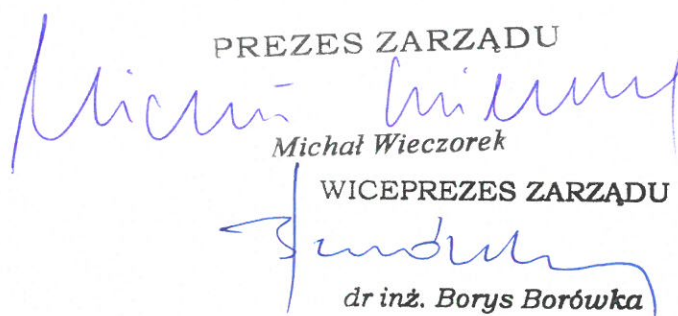 PREZES ZARZĄDU
Michał Wieczorek
WICEPREZES ZARZĄDU
dr inż. Borys Borówka